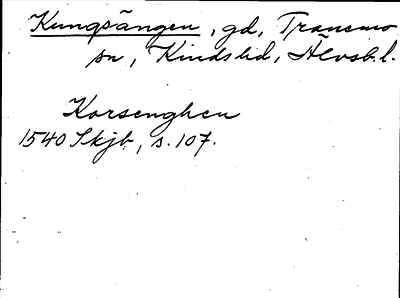 Kungsängen, gd, Tranemo
sn, Kinds hd, Älvsb. l.
Korsenghen
1540 Skjb, s. 107.